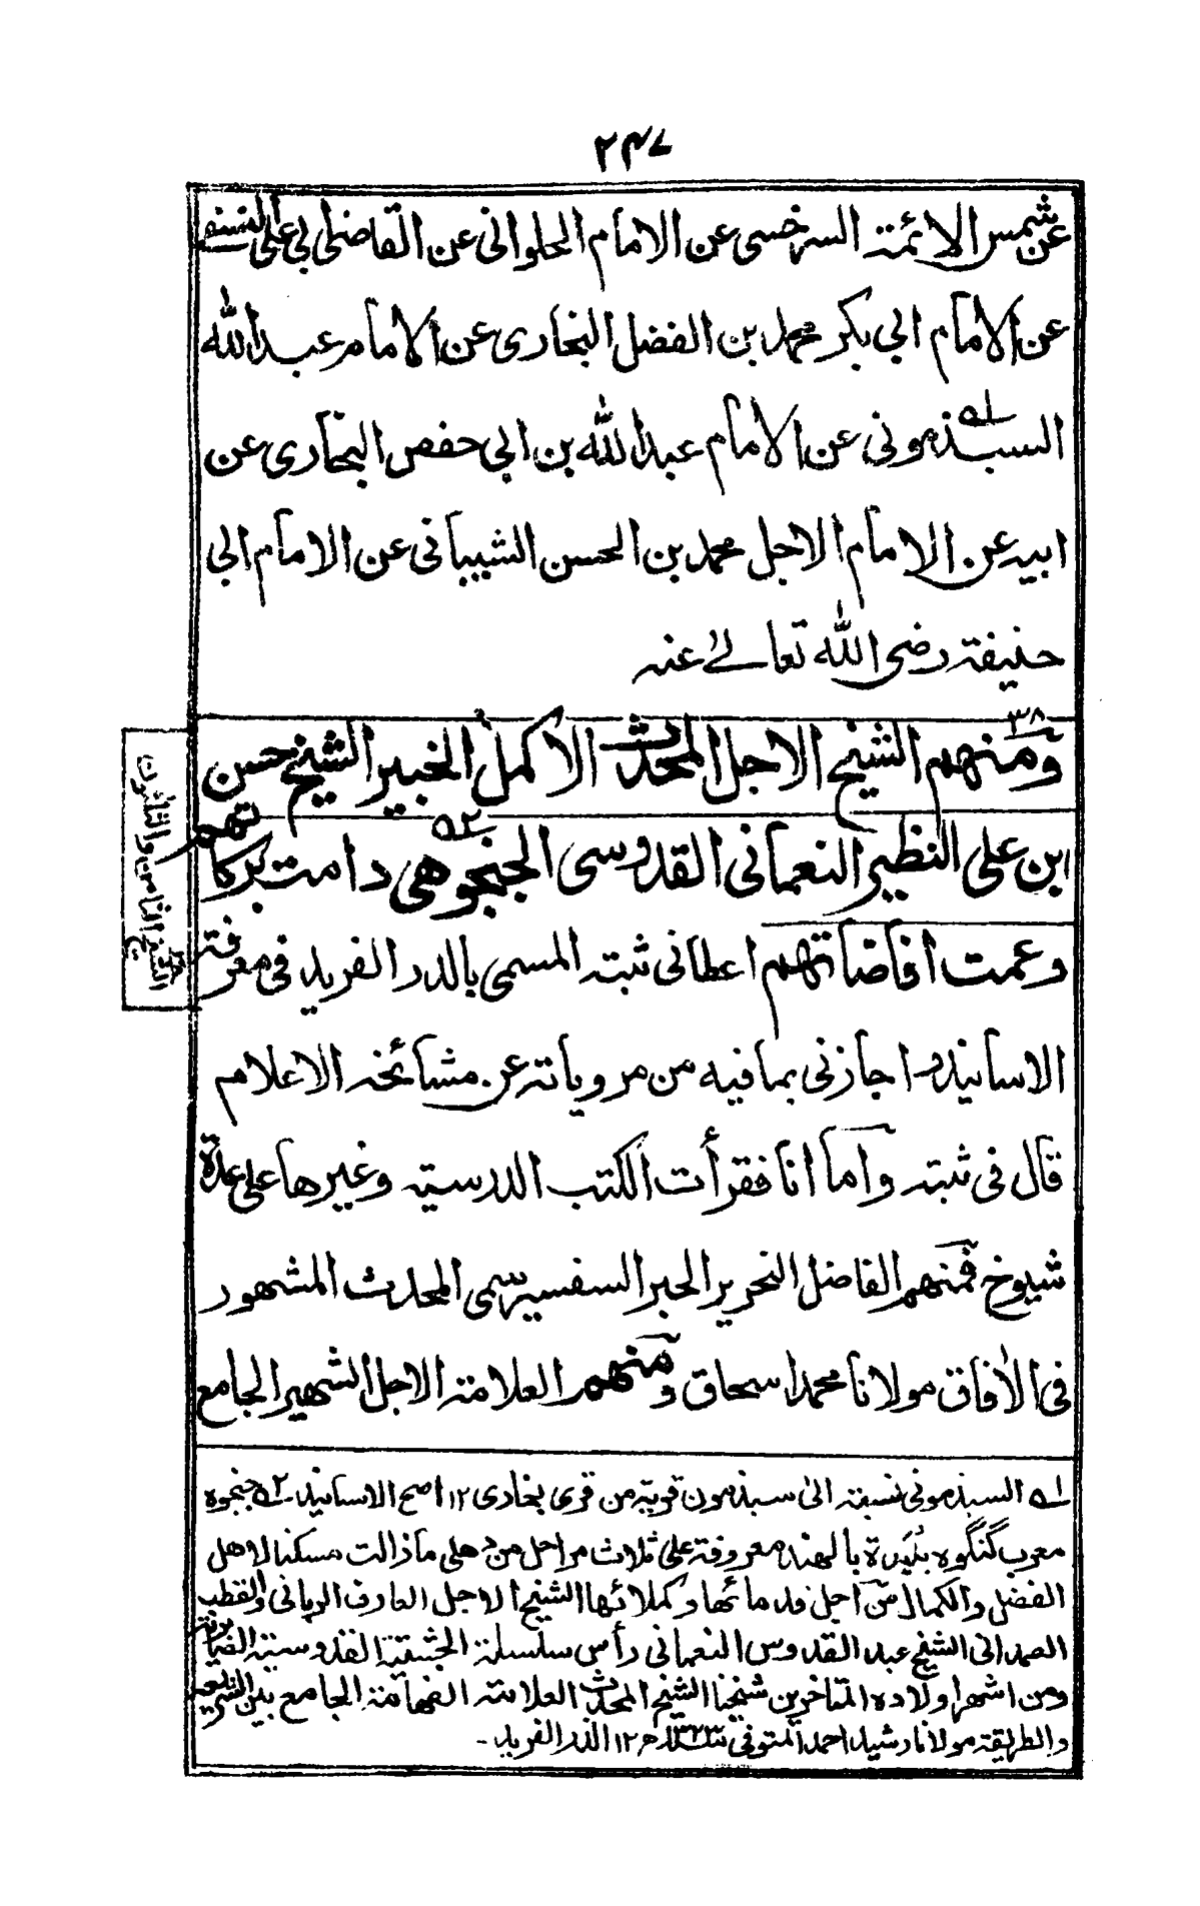 ۲۴۷
عن شمس الائمة السرخسى عن الامام الحلوانى عن القاضى ابى على النسفى
عن الامام ابى بكر محمد بن الفضل البخارى عن الامام عبد الله
السبذمونى ١ه عن الامام عبد الله بن ابى حفص البخارى عن
ابيه عن الامام الاجل محمد بن الحسن الشيبانى عن الامام ابى
حنيفة رضى الله تعالىٰ عنه
٣٨
ومنهم الشيخ الاجل المحدث الاكمل الخبير الشيخ حسن
ابن على النظير النعمانى القدوسى الجنجوهى ٢ه دامت بركاتهم
الشيخ الثامن والثلثون
وعمت افاضاتهم اعطانى ثبته المسمى بالدر الفريد فى معرفة
الاسانيد واجازنى بما فيه من مروياته عن مشائخه الاعلام
قال فى ثبته واما انا فقرأت الكتب الدرسية وغيرها على عدة
شيوخ فمنهم الفاضل النحرير الحبر السفسير سمى المحدث المشهور
فى الاٰفاق مولانا محمد اسحاق ومنهم العلامة الاجل الشهير الجامع
١ه السبذمونى نسبة الىٰ سبذمون قرية من قرى بخارى ١٢ اصح الاسانيد ٢ه جنجوه
معرب گنگوه بُلَيدة بالهند معروفة على ثلاث مراحل من دهلى ما زالت مسكنا لاهل
الفضل والكمال من اجل قدمائها وكملائها الشيخ الاجل العارف الربانى والقطب
الصمدانى الشيخ عبد القدوس النعمانى رأس سلسلة الچشتية القدوسية الصابرية
ومن اشهر اولاده المتاخرين شيخنا الشيخ المحدث العلامة الفهامة الجامع بين الشريعة
والطريقة مولانا رشيد احمد المتوفى سنة ١٣٢٣ھ ١٢ الدر الفريد -